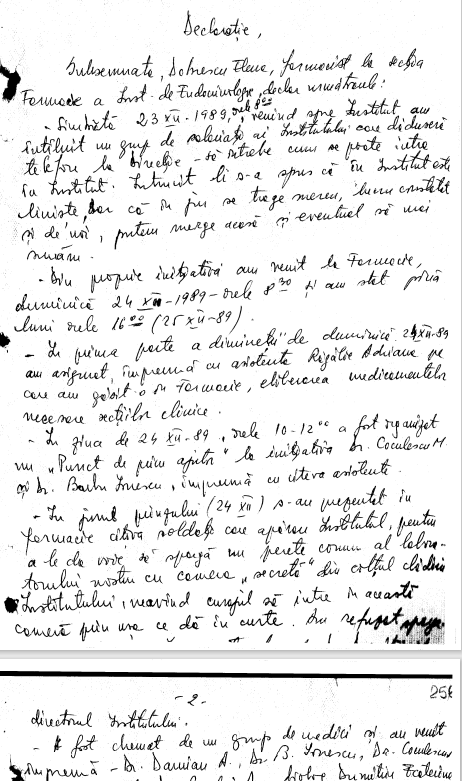 Declarație,
Subsemnata, Dobrescu Elena, farmacist la secția
Farmacie a Inst. de Endocrinologie, declar următoarele:
- Sîmbătă 23 XII - 1989, orele 8⁰⁰, venind spre Institut am
întîlnit un grup de salariați ai Institutului care dăduseră
telefon la Direcție - să întrebe cum se poate intra
în Institut. Întrucît li s-a spus că în Institut este
liniște, dar că în jur se trage mereu, lucru constatat
și de noi, putem merge acasă și eventual să mai
sunăm.
- Din proprie inițiativă am venit la Farmacie,
duminică 24 XII - 1989 - orele 8³⁰ și am stat pînă
luni orele 16⁰⁰ (25 XII - 89).
- În prima parte a dimineții de duminică 24 XII - 89
am asigurat, împreună cu asistenta Adriana pe
care am găsit-o în Farmacie, eliberarea medicamentelor
necesare secțiilor clinice.
- În ziua de 24 XII - 89, orele 10-12⁰⁰ a fost organizat
un „Punct de prim ajutor" la inițiativa Dr. Coculescu M.
și Dr. Barbu Ionescu, împreună cu cîteva asistente.
- În jurul prînzului (24 XII) s-au prezentat în
farmacie cîțiva soldați care apărau Institutul, pentru
a le da voie să spargă un perete comun al labora-
torului nostru cu camera „secretă" din colțul clădirii
Institutului, neavînd curajul să intre în această
cameră prin ușa ce dă în curte. Am refuzat
- 2 -
256
directorul Institutului.
- A fost chemat de un grup de medici și au venit
împreună - Dr. Damian A., Dr. B. Ionescu, Dr. Coculescu
biolog Dumitriu